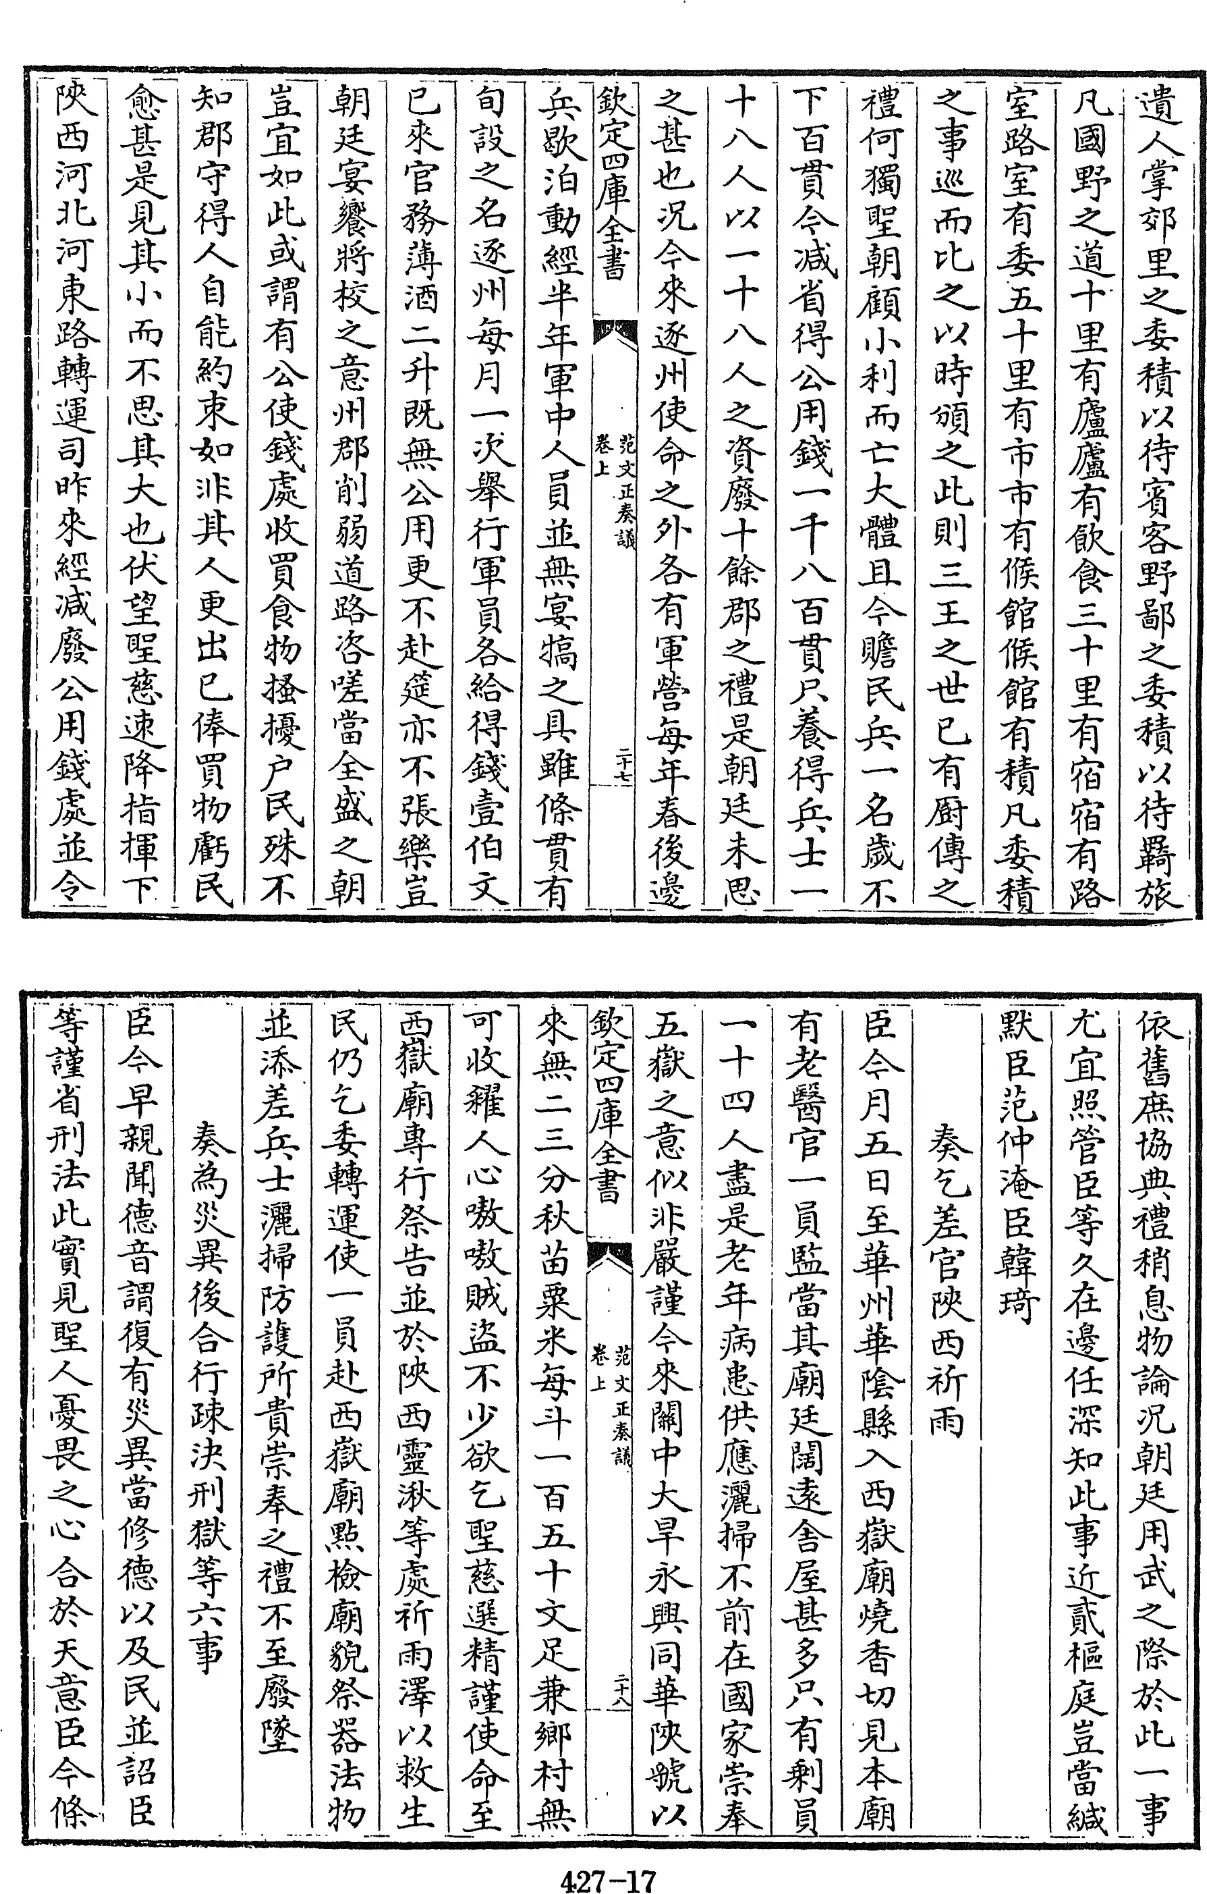 遺人掌郊里之委積以待賓客野鄙之委積以待羇旅
凡國野之道十里有廬廬有飲食三十里有宿宿有路
室路室有委五十里有市市有候館候館有積凡委積
之事巡而比之以時頒之此則三王之世已有厨傳之
禮何獨聖朝顧小利而亡大體且今贍民兵一名歲不
下百貫今減省得公用錢一千八百貫只養得兵士一
十八人以一十八人之資廢十餘郡之禮是朝廷未思
之甚也況今來逐州使命之外各有軍營每年春後邊
欽定四庫全書
范文正奏議
卷上
二十七
兵歇泊動經半年軍中人員並無宴犒之具雖條貫有
旬設之名逐州每月一次舉行軍員各給得錢壹伯文
已來官務薄酒二升既無公用更不赴筵亦不張樂豈
朝廷宴饗將校之意州郡削弱道路咨嗟當全盛之朝
豈宜如此或謂有公使錢處收買食物搔擾户民殊不
知郡守得人自能約束如非其人更出已俸買物虧民
愈甚是見其小而不思其大也伏望聖慈速降指揮下
陜西河北河東路轉運司昨來經減廢公用錢處並令
依舊庶協典禮稍息物論況朝廷用武之際於此一事
尤宜照管臣等久在邊任深知此事近貳樞庭豈當緘
默臣范仲淹臣韓琦
奏乞差官陜西祈雨
臣今月五日至華州華陰縣入西嶽廟燒香切見本廟
有老醫官一員監當其廟廷闊遠舍屋甚多只有剩員
一十四人盡是老年病患供應灑掃不前在國家崇奉
五嶽之意似非嚴謹今來關中大旱永興同華陜虢以
欽定四庫全書
范文正奏議
卷上
二十八
來無二三分秋苗粟米每斗一百五十文足兼鄉村無
可收糴人心嗷嗷賊盜不少欲乞聖慈選精謹使命至
西嶽廟專行祭告並於陜西靈湫等處祈雨澤以救生
民仍乞委轉運使一員赴西嶽廟點檢廟貌祭器法物
並添差兵士灑掃防護所貴崇奉之禮不至廢墜
奏為災異後合行疎決刑獄等六事
臣今早親聞德音謂復有災異當修德以及民並詔臣
等謹省刑法此實見聖人憂畏之心合於天意臣今條
427-17